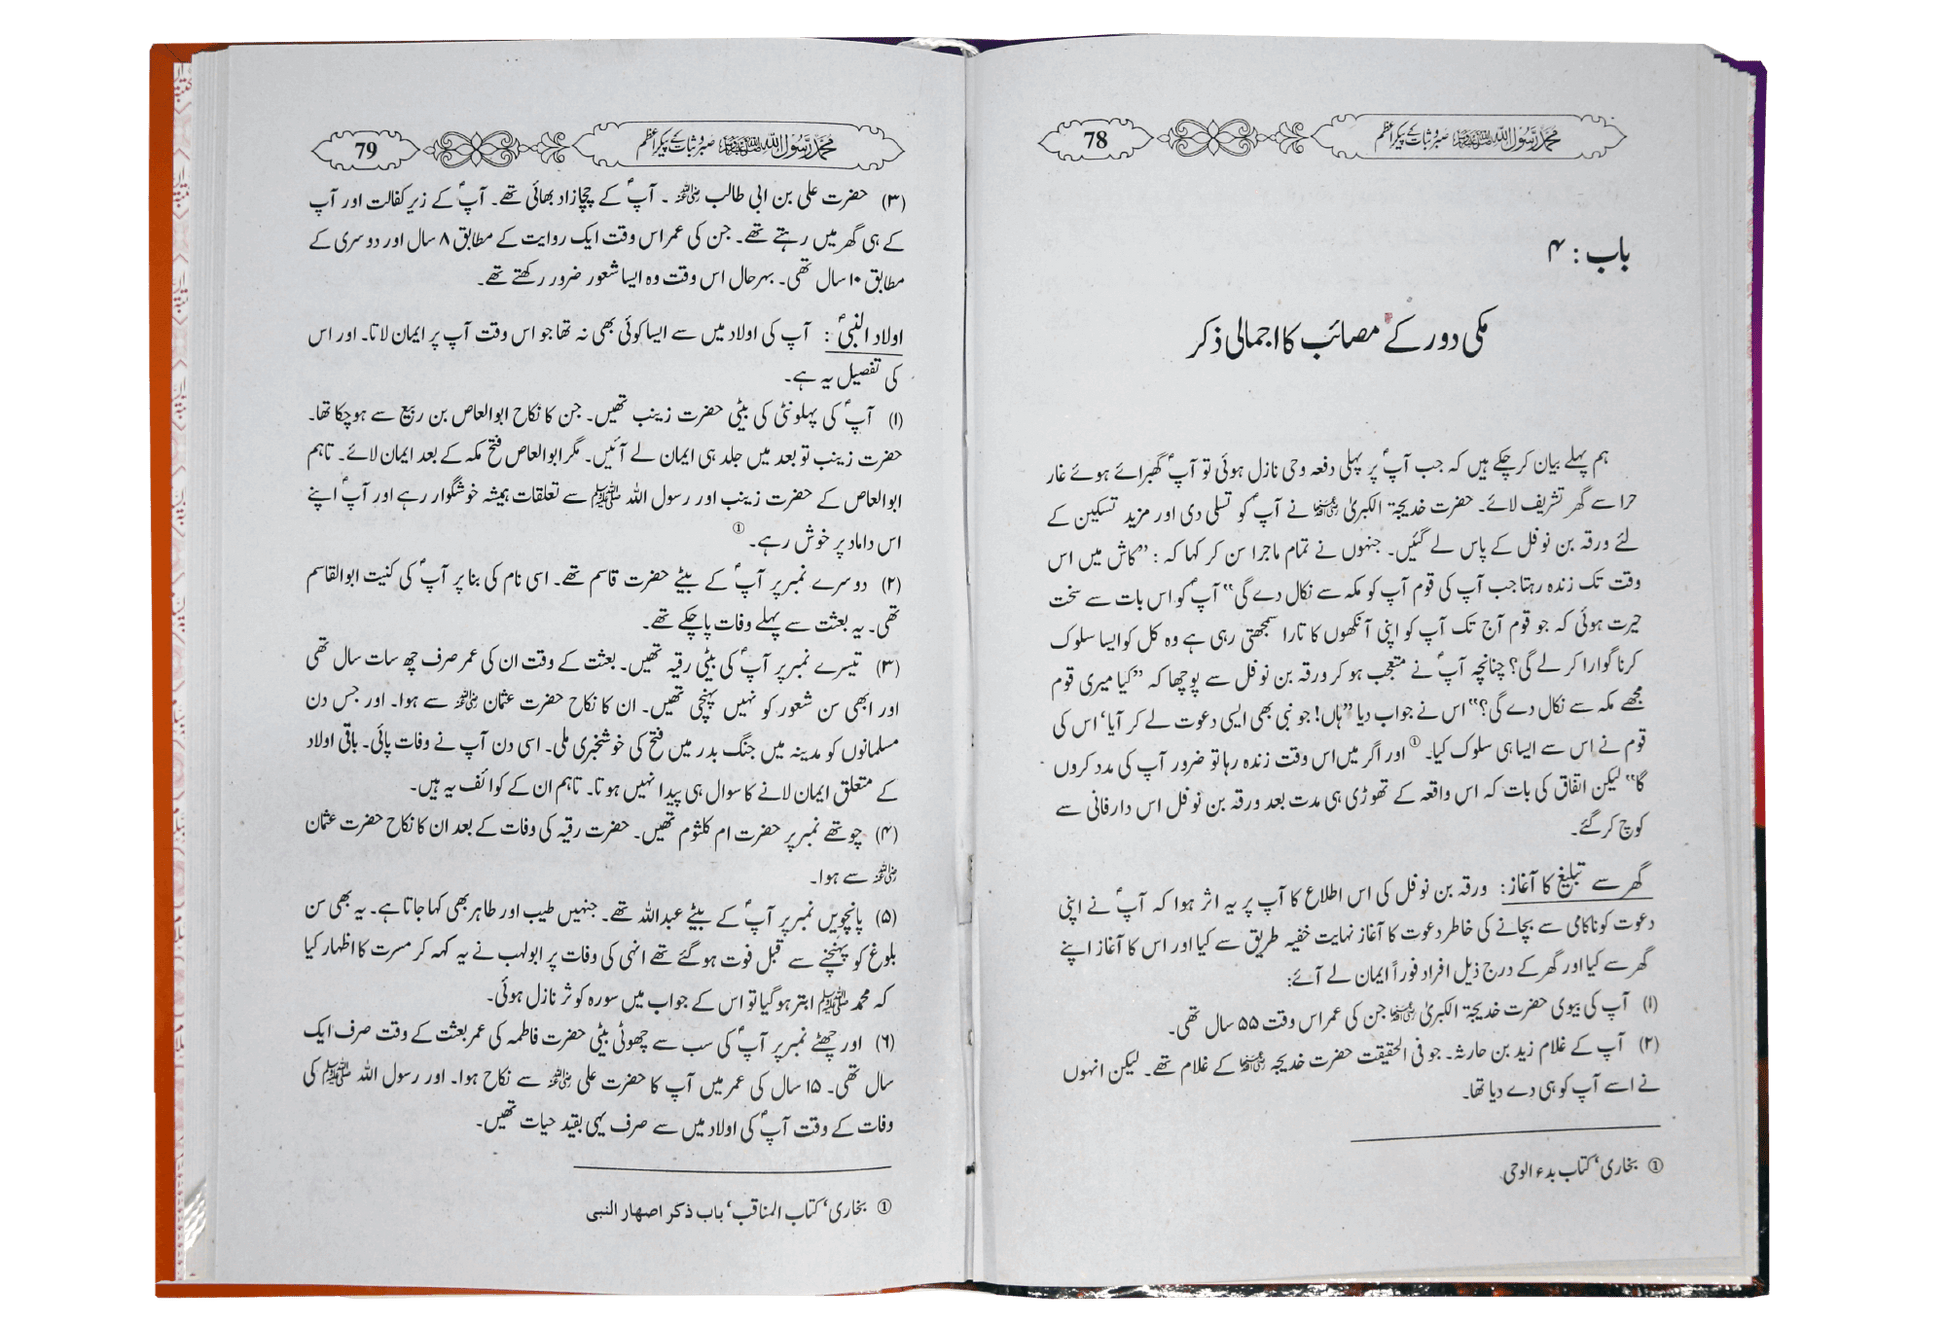 محمد رسول اللہ ﷺ صبر و ثبات کے پیکر اعظم
78
باب : ۴
مکی دور کے مصائب کا اجمالی ذکر
ہم پہلے بیان کر چکے ہیں کہ جب آپؐ پر پہلی دفعہ وحی نازل ہوئی تو آپؐ گھبرائے ہوئے غار
حرا سے گھر تشریف لائے۔ حضرت خدیجۃ الکبریٰ رضی اللہ عنہا نے آپؐ کو تسلی دی اور مزید تسکین کے
لئے ورقہ بن نوفل کے پاس لے گئیں۔ جنہوں نے تمام ماجرا سن کر کہا کہ : ”کاش میں اس
وقت تک زندہ رہتا جب آپ کی قوم آپ کو مکہ سے نکال دے گی“ آپؐ کو اس بات سے سخت
حیرت ہوئی کہ جو قوم آج تک آپ کو اپنی آنکھوں کا تارا سمجھتی رہی ہے وہ کل کو ایسا سلوک
کرنا گوارا کر لے گی؟ چنانچہ آپؐ نے متعجب ہو کر ورقہ بن نوفل سے پوچھا کہ ”کیا میری قوم
مجھے مکہ سے نکال دے گی؟“ اس نے جواب دیا ”ہاں! جو نبی بھی ایسی دعوت لے کر آیا‘ اس کی
قوم نے اس سے ایسا ہی سلوک کیا۔ ① اور اگر میں اس وقت زندہ رہا تو ضرور آپ کی مدد کروں
گا“ لیکن اتفاق کی بات کہ اس واقعہ کے تھوڑی ہی مدت بعد ورقہ بن نوفل اس دارفانی سے
کوچ کر گئے۔
گھر سے تبلیغ کا آغاز : ورقہ بن نوفل کی اس اطلاع کا آپ پر یہ اثر ہوا کہ آپؐ نے اپنی
دعوت کو ناکامی سے بچانے کی خاطر دعوت کا آغاز نہایت خفیہ طریق سے کیا اور اس کا آغاز اپنے
گھر سے کیا اور گھر کے درج ذیل افراد فوراً ایمان لے آئے:
(۱) آپ کی بیوی حضرت خدیجۃ الکبریٰ رضی اللہ عنہا جن کی عمر اس وقت ۵۵ سال تھی۔
(۲) آپ کے غلام زید بن حارثہ۔ جو فی الحقیقت حضرت خدیجہ رضی اللہ عنہا کے غلام تھے۔ لیکن انہوں
نے اسے آپ کو ہی دے دیا تھا۔
① بخاری‘ کتاب بدء الوحی
محمد رسول اللہ ﷺ صبر و ثبات کے پیکر اعظم
79
(۳) حضرت علی بن ابی طالب رضی اللہ عنہ ۔ آپؐ کے چچازاد بھائی تھے۔ آپؐ کے زیر کفالت اور آپ
کے ہی گھر میں رہتے تھے۔ جن کی عمر اس وقت ایک روایت کے مطابق ۸ سال اور دوسری کے
مطابق ۱۰ سال تھی۔ بہرحال اس وقت وہ ایسا شعور ضرور رکھتے تھے۔
اولاد النبیؐ : آپ کی اولاد میں سے ایسا کوئی بھی نہ تھا جو اس وقت آپ پر ایمان لاتا۔ اور اس
کی تفصیل یہ ہے۔
(۱) آپؐ کی پہلونٹی کی بیٹی حضرت زینب تھیں۔ جن کا نکاح ابوالعاص بن ربیع سے ہو چکا تھا۔
حضرت زینب تو بعد میں جلد ہی ایمان لے آئیں۔ مگر ابوالعاص فتح مکہ کے بعد ایمان لائے۔ تاہم
ابوالعاص کے حضرت زینب اور رسول اللہ ﷺ سے تعلقات ہمیشہ خوشگوار رہے اور آپؐ اپنے
اس داماد پر خوش رہے۔ ①
(۲) دوسرے نمبر پر آپؐ کے بیٹے حضرت قاسم تھے۔ اسی نام کی بنا پر آپؐ کی کنیت ابوالقاسم
تھی۔ یہ بعثت سے پہلے وفات پا چکے تھے۔
(۳) تیسرے نمبر پر آپؐ کی بیٹی رقیہ تھیں۔ بعثت کے وقت ان کی عمر صرف چھ سات سال تھی
اور ابھی سن شعور کو نہیں پہنچی تھیں۔ ان کا نکاح حضرت عثمان رضی اللہ عنہ سے ہوا۔ اور جس دن
مسلمانوں کو مدینہ میں جنگ بدر میں فتح کی خوشخبری ملی۔ اسی دن آپ نے وفات پائی۔ باقی اولاد
کے متعلق ایمان لانے کا سوال ہی پیدا نہیں ہوتا۔ تاہم ان کے کوائف یہ ہیں۔
(۴) چوتھے نمبر پر حضرت ام کلثوم تھیں۔ حضرت رقیہ کی وفات کے بعد ان کا نکاح حضرت عثمان
رضی اللہ عنہ سے ہوا۔
(۵) پانچویں نمبر پر آپؐ کے بیٹے عبداللہ تھے۔ جنہیں طیب اور طاہر بھی کہا جاتا ہے۔ یہ بھی سن
بلوغ کو پہنچنے سے قبل فوت ہو گئے تھے انہی کی وفات پر ابولہب نے یہ کہہ کر مسرت کا اظہار کیا
کہ محمد ﷺ ابتر ہو گیا تو اس کے جواب میں سورہ کوثر نازل ہوئی۔
(۶) اور چھٹے نمبر پر آپؐ کی سب سے چھوٹی بیٹی حضرت فاطمہ کی عمر بعثت کے وقت صرف ایک
سال تھی۔ ۱۵ سال کی عمر میں آپ کا حضرت علی رضی اللہ عنہ سے نکاح ہوا۔ اور رسول اللہ ﷺ کی
وفات کے وقت آپؐ کی اولاد میں سے صرف یہی بقید حیات تھیں۔
① بخاری‘ کتاب المناقب‘ باب ذکر اصهار النبی